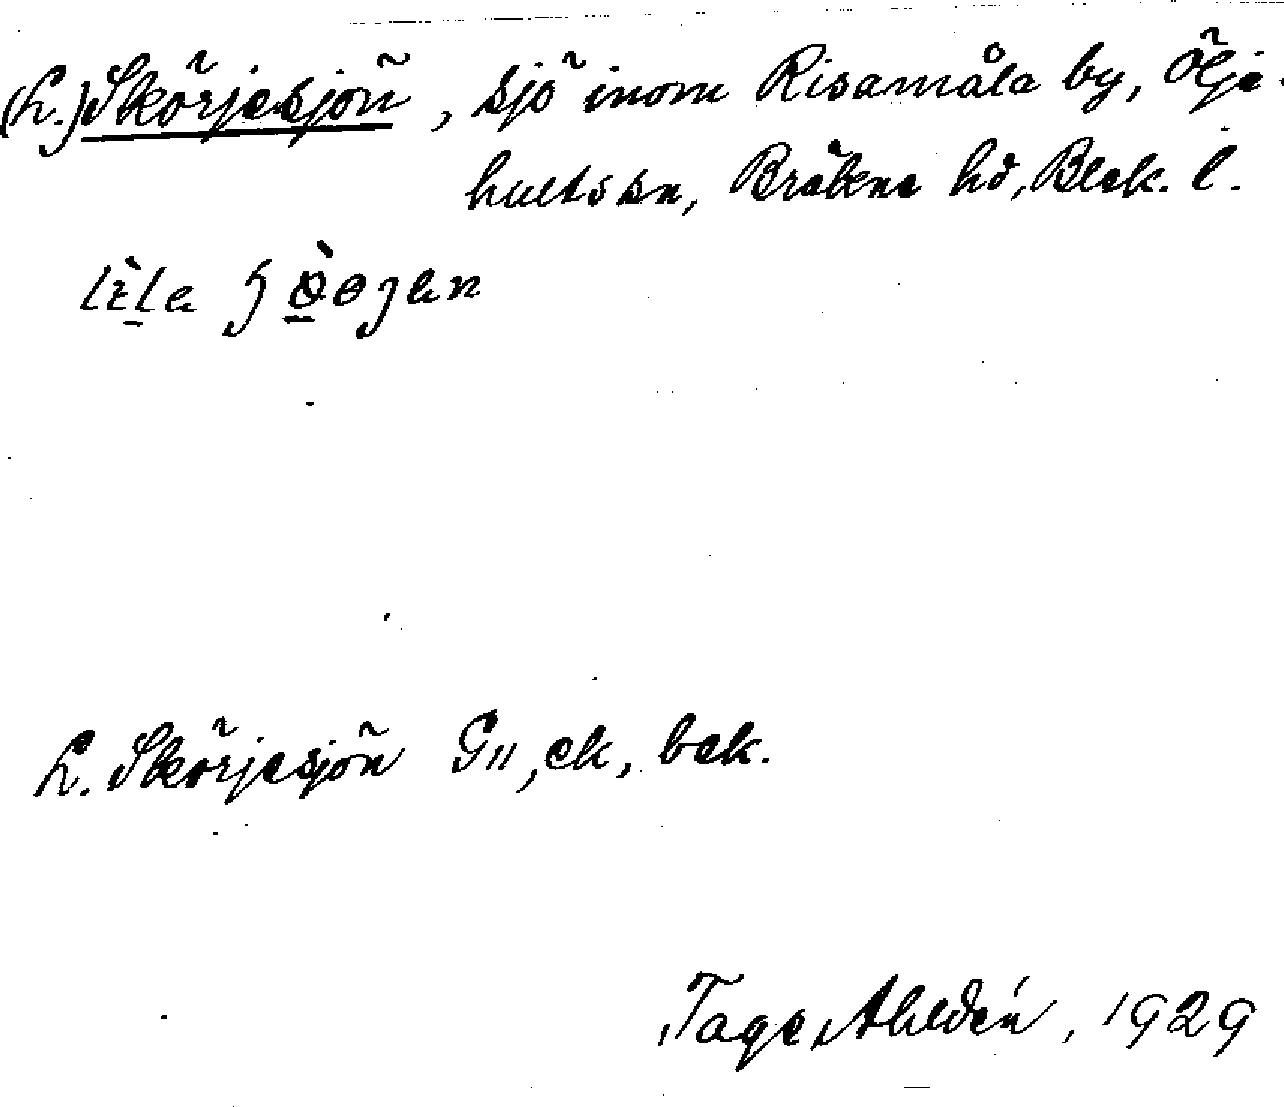 (L.) Skörjesjön, sjö inom Risamåla by, Ölje-
hults sn, Bräkne hd, Blek. l.
L. Skörjesjön G11, ek, bek.
Tage Ahldén, 1929